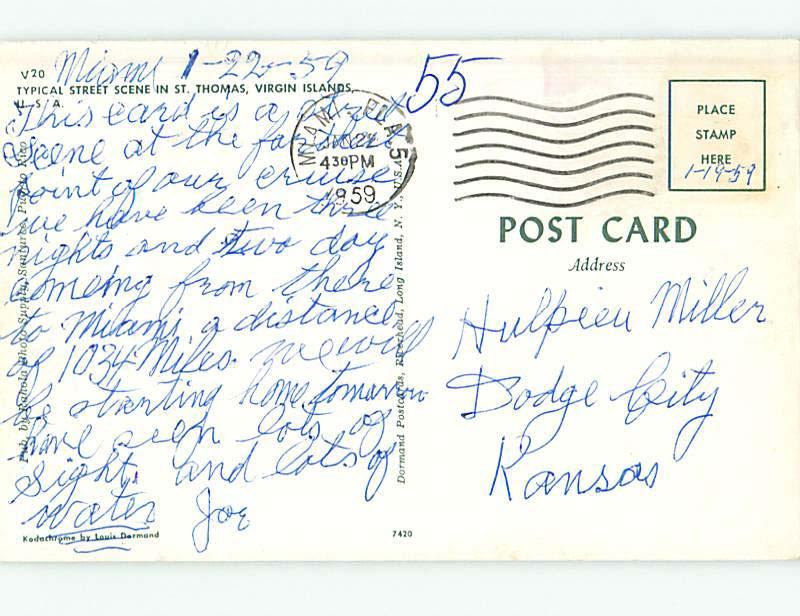 Miami 1-22-59
V20
TYPICAL STREET SCENE IN ST. THOMAS, VIRGIN ISLANDS,
U. S. A.
This card is a street
scene at the farthest
point of our cruise
we have been three
nights and two day
comeing from there
to Miami a distance
of 1034 Miles. we will
be starting home tomorrow
have seen lots of
sight and lots of
water Joe
Kodachrome by Louis Dormand
Pub. by Photo Supply, Santurce, Puerto Rico
Dormand Postcards, Riverhead, Long Island, N. Y., U.S.A.
7420
55
MIAMI
JAN 22
4 30 PM
1959
PLACE
STAMP
HERE
1-19-59
POST CARD
Address
Miller
Dodge City
Kansas